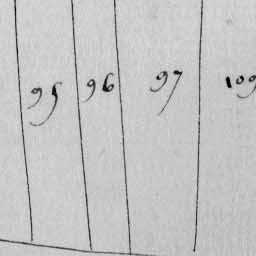 95 96 97 109